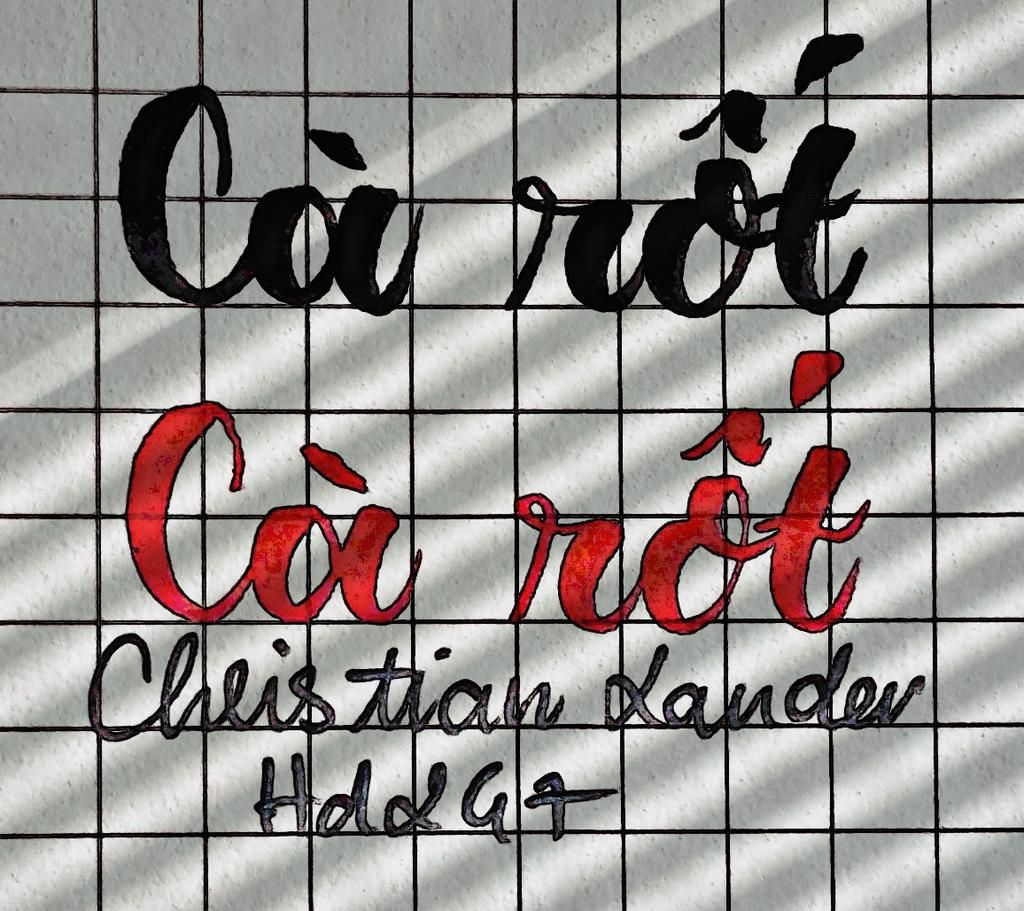 Cà rốt
Cà rốt
Christian Lander